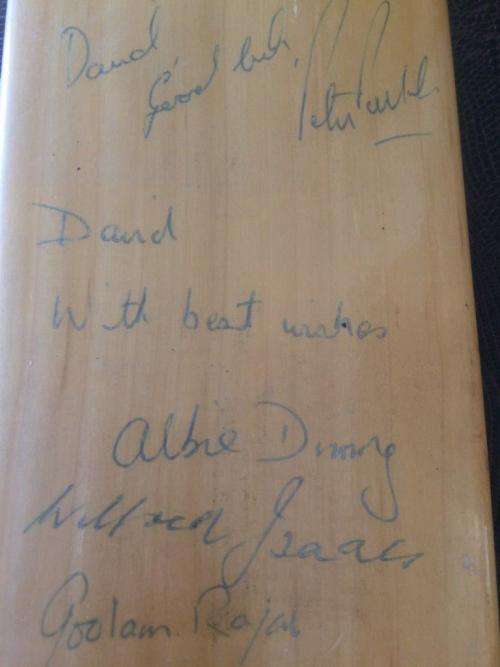 David,
Good luck, Peter
David
With best wishes
Albie During
Wilfred Isaacs
Goolam Rajah